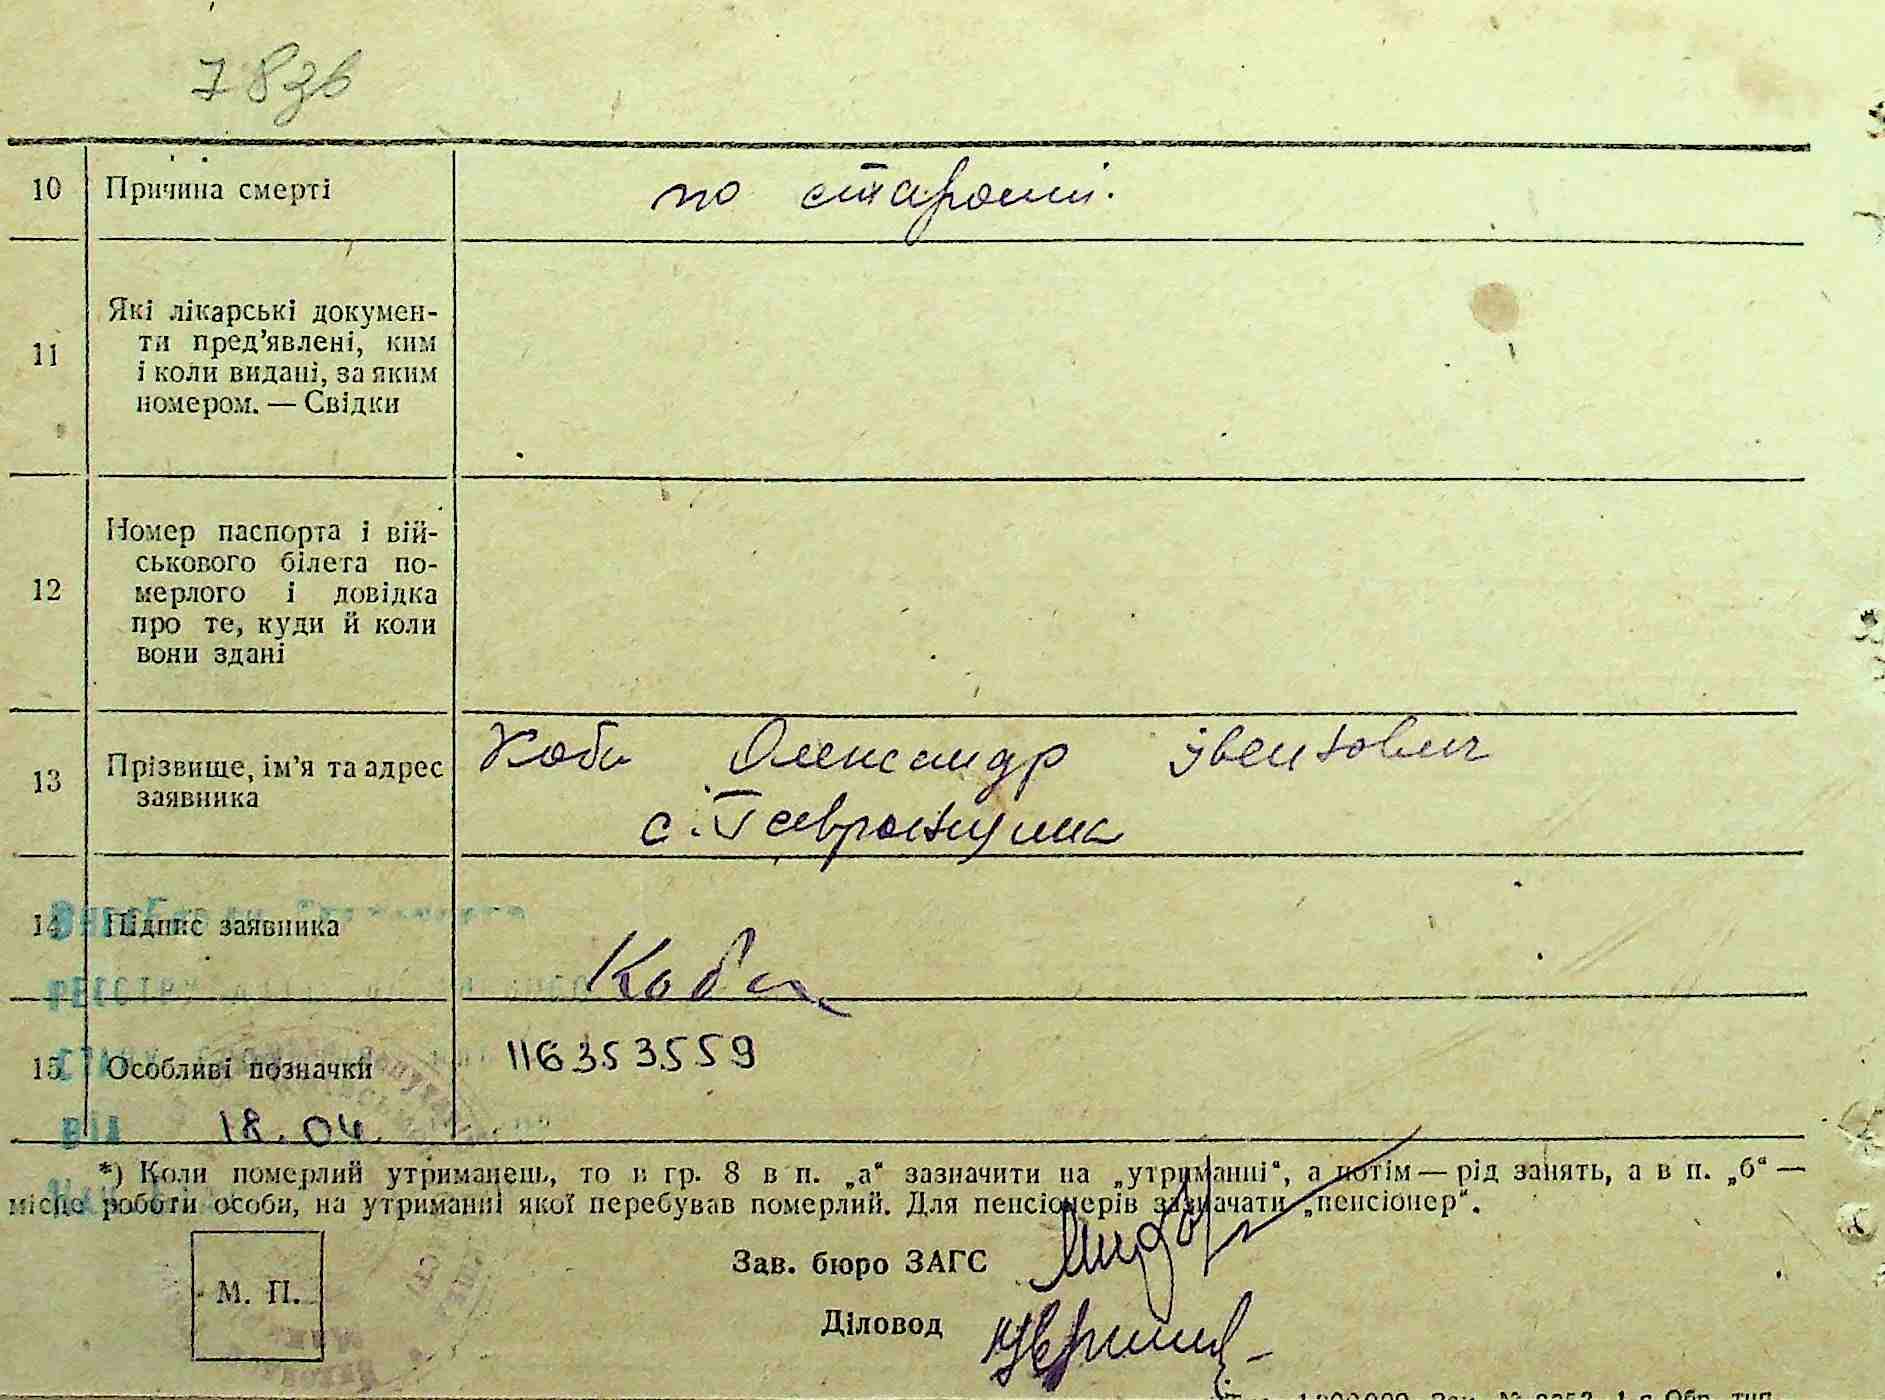 78зв
10 Причина смерті по старости.
11 Які лікарські докумен-
ти пред’явлені, ким
і коли видані, за яким
номером. — Свідки
12 Номер паспорта і вій-
ськового білета по-
мерлого і довідка
про те, куди й коли
вони здані
13 Прізвище, ім’я та адрес
заявника
Коба Олександр
с. Гавронщина
14 Підпис заявника
Коба
15 Особливі позначки 116353559
ВІД 18.04.
*) Коли померлий утриманець, то в гр. 8 в п. „а“ зазначити на „утриманні“, а потім — рід занять, а в п. „б“ —
місце роботи особи, на утриманні якої перебував померлий. Для пенсіонерів зазначати „пенсіонер“.
Зав. бюро ЗАГС
М. П.
Діловод